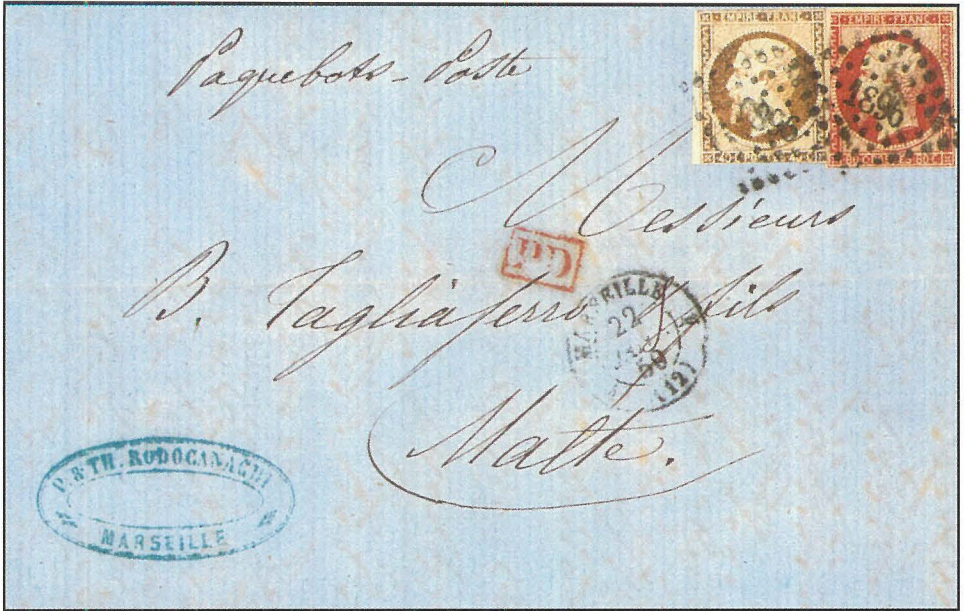 EMPIRE FRANC EMPIRE FRANC
1896
1896
40 C 80 C
Paquebots-Poste
Messieurs
PD
B. Tagliaferro & fils
MARSEILLE
22
(12)
Malte.
P. & TH. RODOCANACHI
MARSEILLE